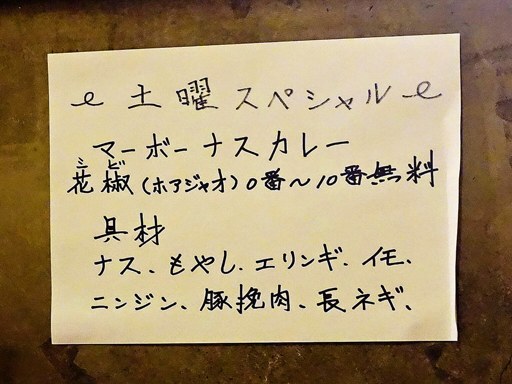 土曜スペシャル
マーボーナスカレー
シビ
花椒(ホアジャオ)0番〜10番無料
具材
ナス、もやし、エリンギ、イモ、
ニンジン、豚挽肉、長ネギ、